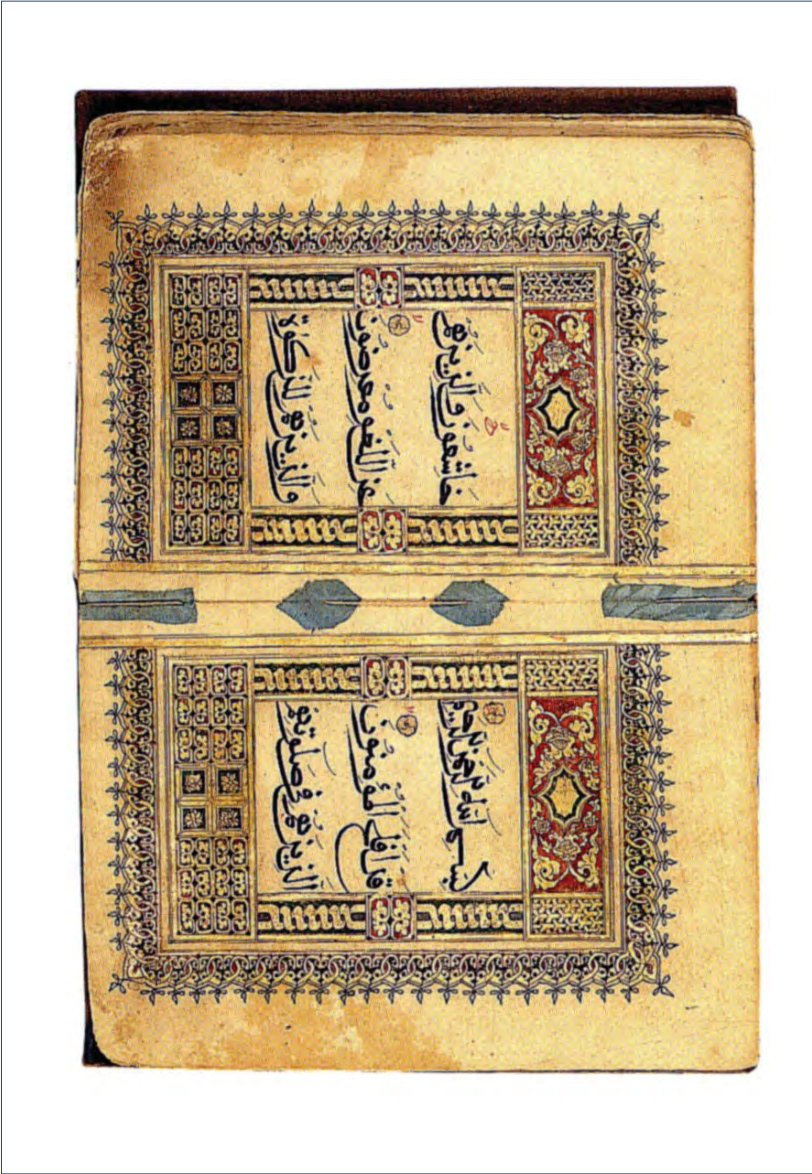 بسم الله الرحمن الرحيم
قد افلح المؤمنون
الذين هم في صلوتهم
خاشعون والذين هم
عن اللغو معرضون
والذين هم للزكوة